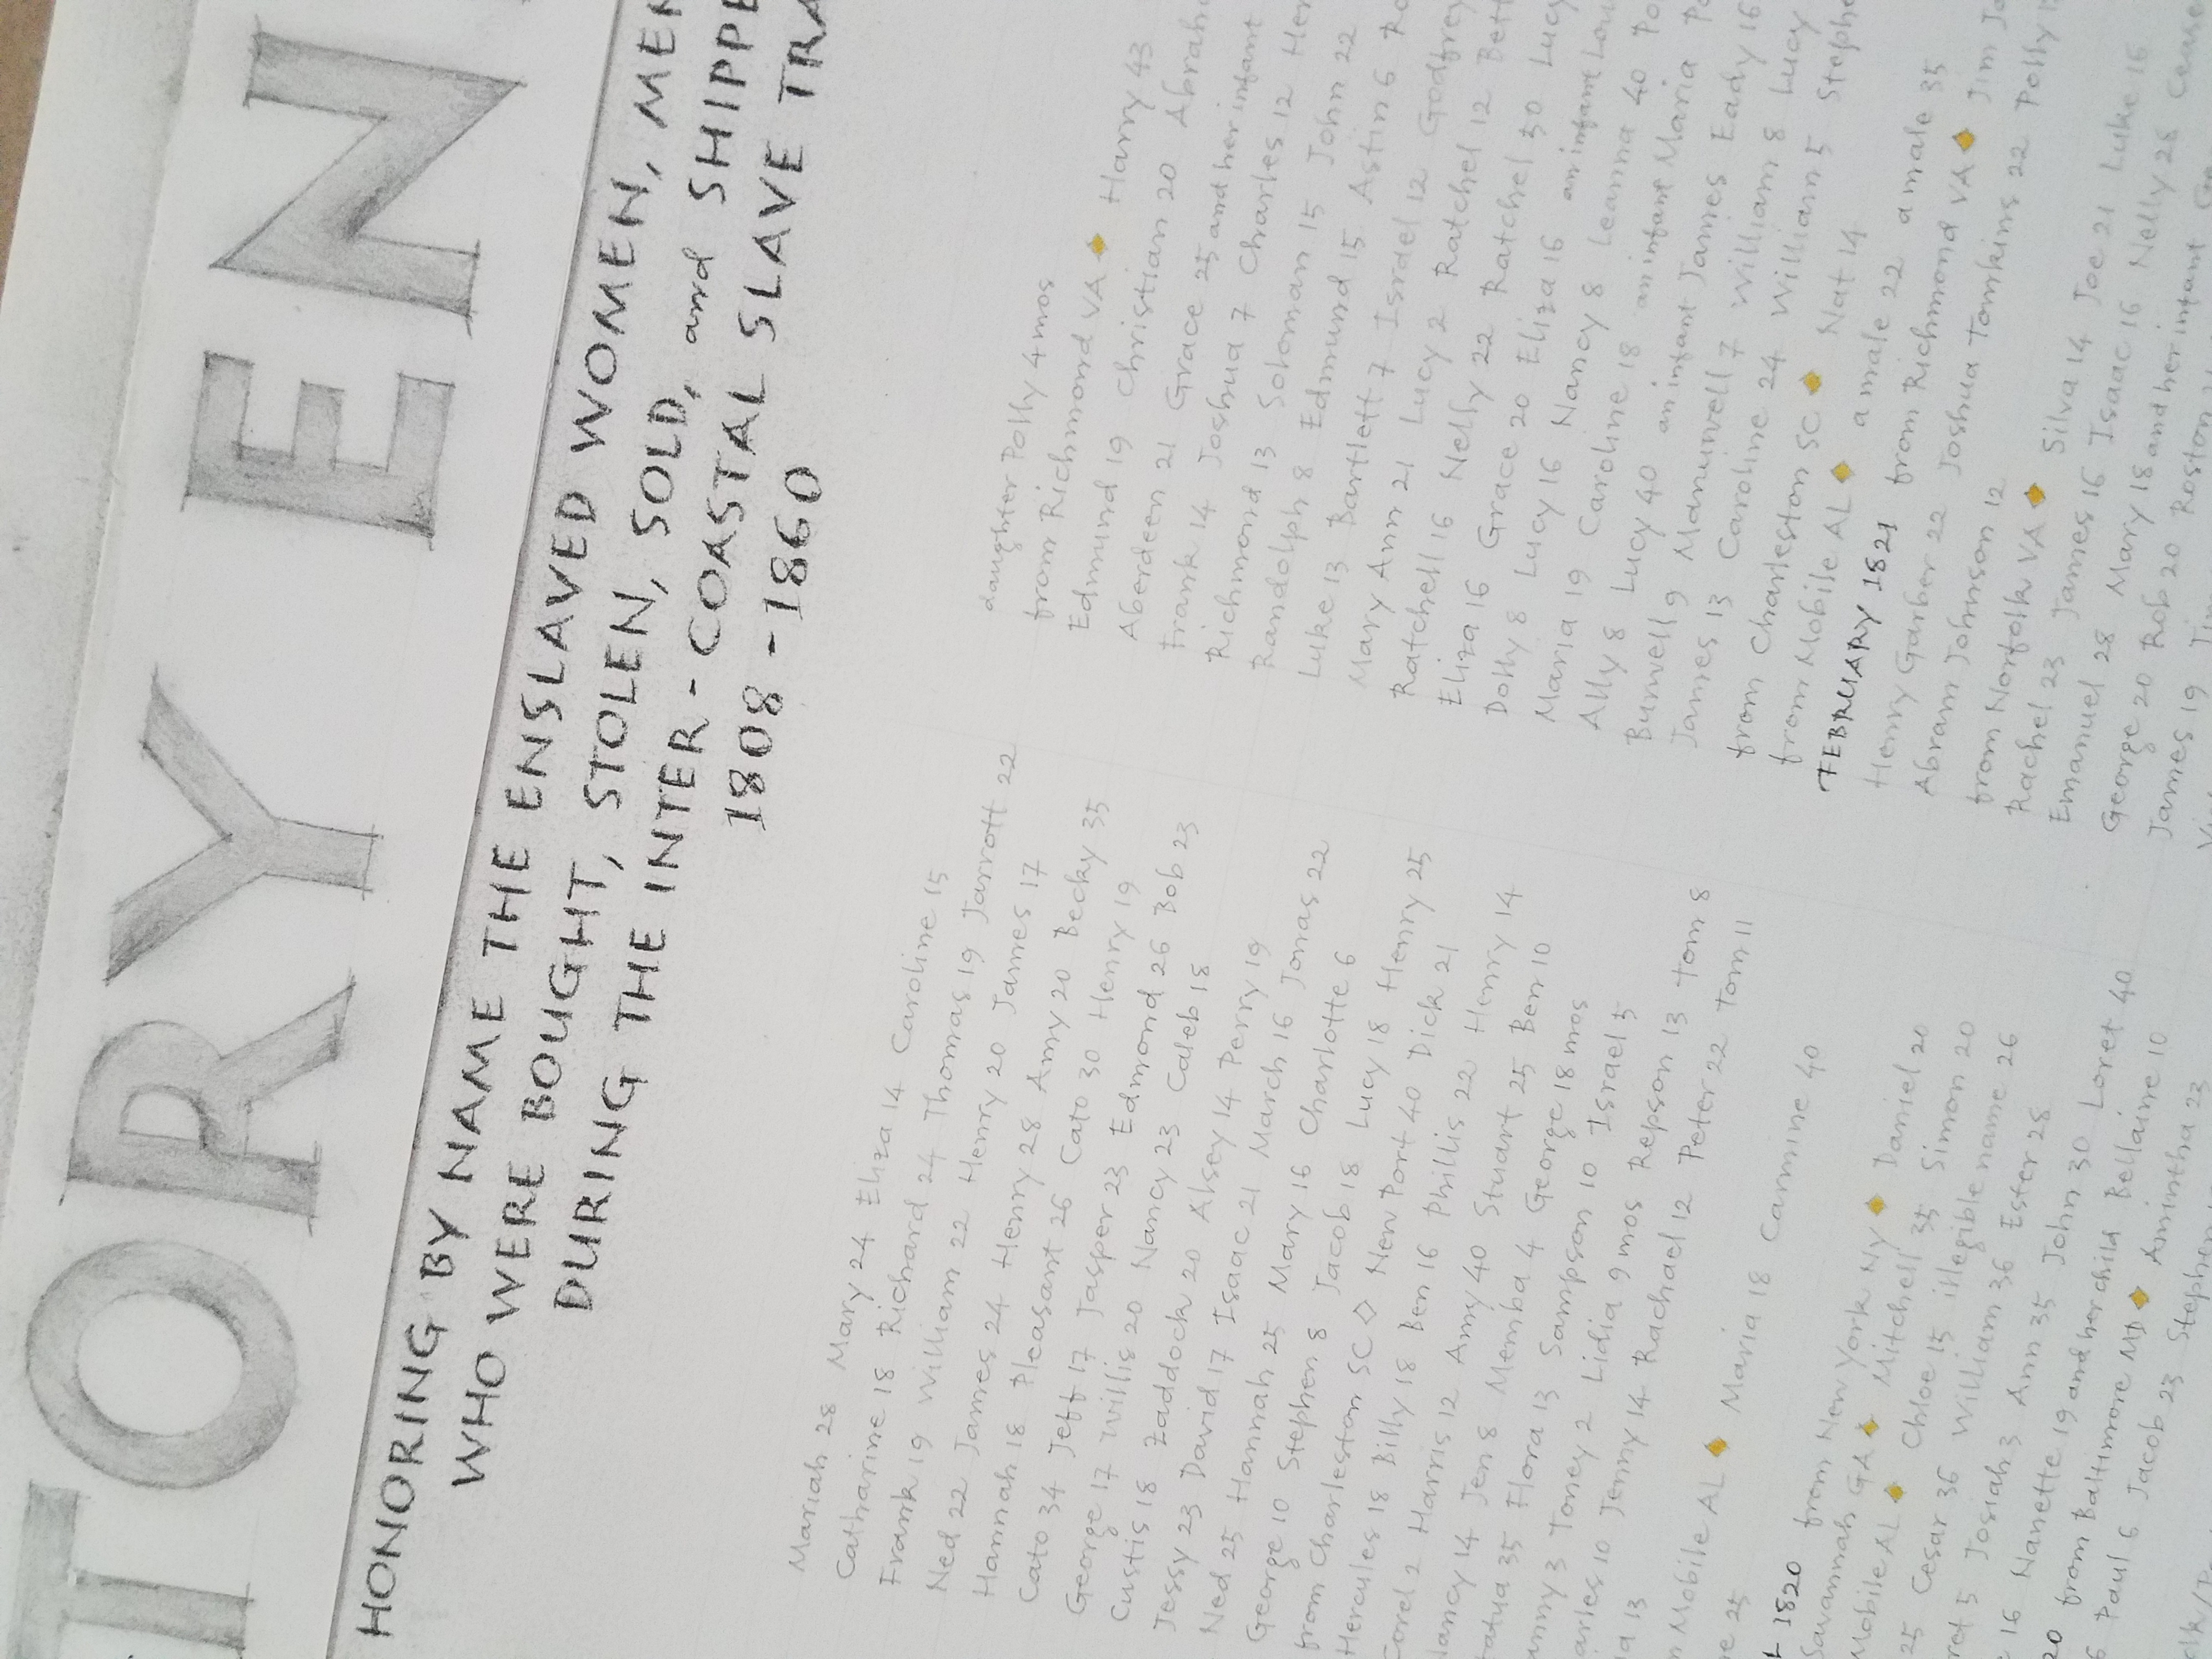 TORY EN
HONORING BY NAME THE ENSLAVED WOMEN, MEN
WHO WERE BOUGHT, STOLEN, SOLD, and SHIPPE
DURING THE INTER-COASTAL SLAVE TRA
1808 - 1860
Mariah 28 Mary 24 Eliza 14 Caroline 15
Catharine 18 Richard 24 Thomas 19 Jarrott 22
Frank 19 William 22 Henry 20 James 17
Ned 22 James 24 Henry 28 Amy 20 Becky 35
Hannah 18 Pleasant 26 Cato 30 Henry 19
Cato 34 Jeff 17 Jasper 23 Edmond 26 Bob 23
George 17 Willis 20 Nancy 23 Caleb 18
Custis 18 Zaddock 20 Alsey 14 Perry 19
Jessy 23 David 17 Isaac 21 March 16 Jonas 22
Ned 25 Hannah 25 Mary 16 Charlotte 6
George 10 Stephen 8 Jacob 18 Lucy 18 Henry 25
from Charleston SC ◇ New Port 40 Dick 21
Hercules 18 Billy 18 Ben 16 Phillis 22 Henry 14
Corel 2 Harris 12 Amy 40 Stuart 25 Ben 10
Nancy 14 Jen 8 Memba 4 George 18 mos
tatua 35 Flora 13 Sampson 10 Israel 5
unny 3 Toney 2 Lidia 9 mos Repson 13 Tom 8
arles 10 Jenny 14 Rachael 12 Peter 22 Tom 11
ia 13
m Mobile AL ◆ Maria 18 Carmine 40
e 25
L 1820 from New York NY ◆ Daniel 20
Savannah GA ◆ Mitchell 35 Simon 20
Mobile AL ◆ Chloe 15 illegible name 26
25 Cesar 36 William 36 Ester 28
ret 5 Josiah 3 Ann 35 John 30 Loret 40
e 16 Nanette 19 and her child Bellaine 10
20 from Baltimore MD ◆ Amintha 23
6 Paul 6 Jacob 23 Stephen
daughter Polly 4 mos
from Richmond VA ◆ Harry 43
Edmund 19 Christian 20 Abrah
Aberdeen 21 Grace 25 and her infant
Frank 14 Joshua 7 Charles 12 Hen
Richmond 13 Soloman 15 John 22
Randolph 8 Edmund 15 Astin 6 Ro
Luke 13 Bartlett 7 Israel 12 Godfrey
Mary Ann 21 Lucy 2 Ratchel 12 Bett
Ratchell 16 Nelly 22 Ratchel 30 Lucy
Eliza 16 Grace 20 Eliza 16 an infant Lou
Dolly 8 Lucy 16 Nancy 8 Leanna 40 Po
Maria 19 Caroline 18 an infant Maria Po
Ally 8 Lucy 40 an infant James Eady 16
Burwell 9 Manuwell 7 William 8 Lucy
James 13 Caroline 24 William 5 Steph
from Charleston SC ◆ Nat 14
from Mobile AL ◆ a male 22 a male 35
FEBRUARY 1821 from Richmond VA ◆ Jim Jo
Henry Garber 22 Joshua Tomkins 22 Polly
Abram Johnson 12
from Norfolk VA ◆ Silva 14 Joe 21 Luke 16
Rachel 23 James 16 Isaac 16 Nelly 28 Cease
Emanuel 28 Mary 18 and her infant Ge
George 20 Rob 20 Roston
James 19 Jim